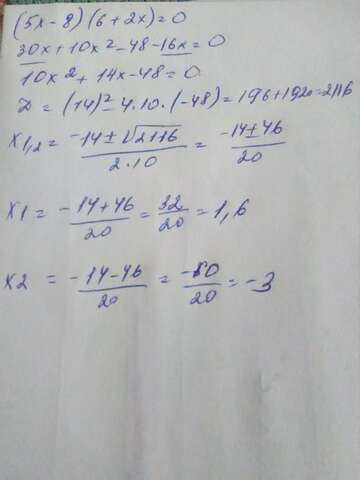 (5x-8)(6+2x)=0
30x+10x²-48-16x=0
10x²+14x-48=0
D=(14)²-4·10·(-48)=196+1920=2116
x1,2 = -14±√2116 / 2·10 = -14±46 / 20
x1 = -14+46 / 20 = 32 / 20 = 1,6
x2 = -14-46 / 20 = -60 / 20 = -3